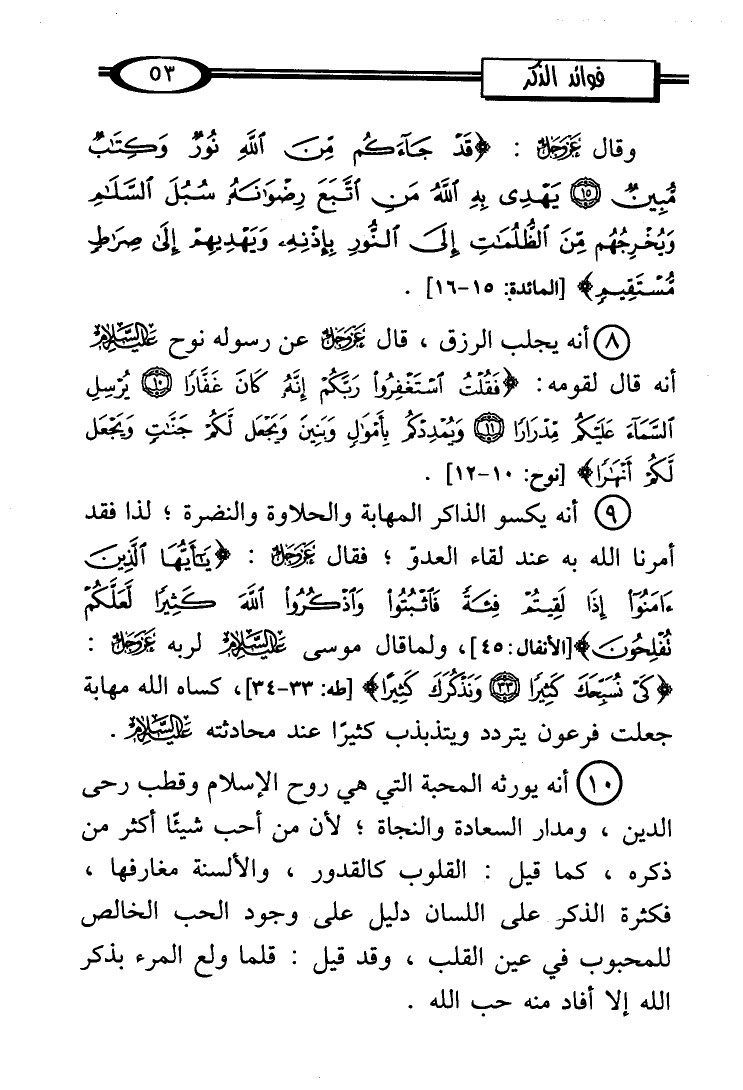 فوائد الذكر
٥٣
وقال عَزَّوَجَلَّ : ﴿قَدْ جَآءَكُم مِّنَ ٱللَّهِ نُورٌ وَكِتَٰبٌ
مُّبِينٌ ١٥ يَهْدِى بِهِ ٱللَّهُ مَنِ ٱتَّبَعَ رِضْوَٰنَهُۥ سُبُلَ ٱلسَّلَٰمِ
وَيُخْرِجُهُم مِّنَ ٱلظُّلُمَٰتِ إِلَى ٱلنُّورِ بِإِذْنِهِۦ وَيَهْدِيهِمْ إِلَىٰ صِرَٰطٍ
مُّسْتَقِيمٍ﴾ [المائدة: ١٥-١٦] .
٨ أنه يجلب الرزق ، قال عَزَّوَجَلَّ عن رسوله نوح عَلَيْهِ السَّلَامُ
أنه قال لقومه: ﴿فَقُلْتُ ٱسْتَغْفِرُوا۟ رَبَّكُمْ إِنَّهُۥ كَانَ غَفَّارًا ١٠ يُرْسِلِ
ٱلسَّمَآءَ عَلَيْكُم مِّدْرَارًا ١١ وَيُمْدِدْكُم بِأَمْوَٰلٍ وَبَنِينَ وَيَجْعَل لَّكُمْ جَنَّٰتٍ وَيَجْعَل
لَّكُمْ أَنْهَٰرًا﴾ [نوح: ١٠-١٢] .
٩ أنه يكسو الذاكر المهابة والحلاوة والنضرة ؛ لذا فقد
أمرنا الله به عند لقاء العدوّ ؛ فقال عَزَّوَجَلَّ : ﴿يَٰٓأَيُّهَا ٱلَّذِينَ
ءَامَنُوٓا۟ إِذَا لَقِيتُمْ فِئَةً فَٱثْبُتُوا۟ وَٱذْكُرُوا۟ ٱللَّهَ كَثِيرًا لَّعَلَّكُمْ
تُفْلِحُونَ﴾[الأنفال:٤٥]، ولماقال موسى عَلَيْهِ السَّلَامُ لربه عَزَّوَجَلَّ :
﴿كَىْ نُسَبِّحَكَ كَثِيرًا ٣٣ وَنَذْكُرَكَ كَثِيرًا﴾ [طه: ٣٣-٣٤]، كساه الله مهابة
جعلت فرعون يتردد ويتذبذب كثيرًا عند محادثته عَلَيْهِ السَّلَامُ .
١٠ أنه يورثه المحبة التي هي روح الإسلام وقطب رحى
الدين ، ومدار السعادة والنجاة ؛ لأن من أحب شيئًا أكثر من
ذكره ، كما قيل : القلوب كالقدور ، والألسنة مغارفها ،
فكثرة الذكر على اللسان دليل على وجود الحب الخالص
للمحبوب في عين القلب ، وقد قيل : قلما ولع المرء بذكر
الله إلا أفاد منه حب الله .